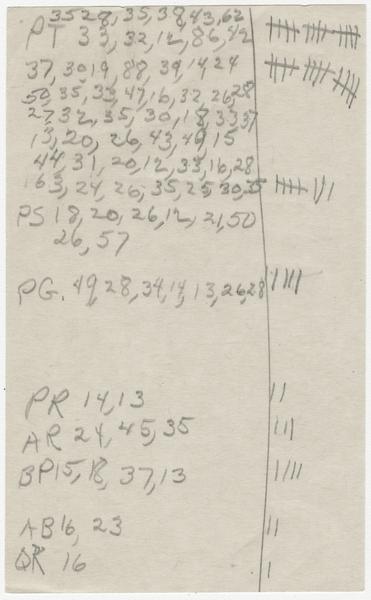 3528, 35, 38, 43, 62
PT 33, 32, 12, 86, 42
37, 3019, 88, 39, 14 24
50, 35, 33, 47, 16, 32, 26, 28
27, 32, 35, 30, 18, 33 37
13, 20, 26, 43, 49, 15
44, 31, 20, 12, 33, 16, 28
163, 24, 26, 35, 25, 30, 35
PS 18, 20, 26, 12, 21, 50
26, 57
PG. 49, 28, 34, 14, 13, 26, 28
PR 14, 13
AR 24, 45, 35
BP 15, 18, 37, 13
AB 16, 23
QR 16